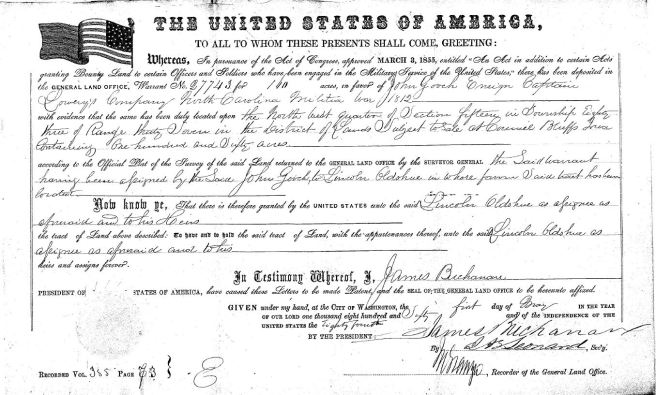 THE UNITED STATES OF AMERICA,
TO ALL TO WHOM THESE PRESENTS SHALL COME, GREETING:
Whereas, In pursuance of the Act of Congress, approved MARCH 3, 1855, entitled "An Act in addition to certain Acts
granting Bounty Land to certain Officers and Soldiers who have been engaged in the Military Service of the United States," there has been deposited in
the GENERAL LAND OFFICE, Warrant No. 27743 for 160 acres, in favor of John Gooch Ensign Captain
Lowery's Company North Carolina Militia War 1812
with evidence that the same has been duly located upon the North West quarter of Section fifteen in Township Eighty
three of Range thirty Seven in the District of Lands Subject to Sale at Council Bluffs Iowa
Containing One hundred and Sixty acres
according to the Official Plat of the Survey of the said Land returned to the GENERAL LAND OFFICE by the SURVEYOR GENERAL the Said Warrant
having been assigned by the Said John Gooch to Lincoln Eldshue in whose favor Said tract has been
located
Now know ye, That there is therefore granted by the UNITED STATES unto the said Lincoln Eldshue as assignee as
aforesaid and to his Heirs
the tract of Land above described: To have and to hold the said tract of Land, with the appurtenances thereof, unto the said Lincoln Eldshue as
assignee as aforesaid and to his
heirs and assigns forever.
In Testimony Whereof, I, James Buchanan
PRESIDENT OF STATES OF AMERICA, have caused these Letters to be made Patent, and the SEAL OF THE GENERAL LAND OFFICE to be hereunto affixed.
GIVEN under my hand, at the CITY OF WASHINGTON, the first day of May IN THE YEAR
OF OUR LORD one thousand eight hundred and Sixty and of the INDEPENDENCE OF THE
UNITED STATES the Eighty fourth
BY THE PRESIDENT: James Buchanan
By Leonard, Sec'y.
Recorder of the General Land Office.
RECORDED VOL. 385 PAGE 73 E